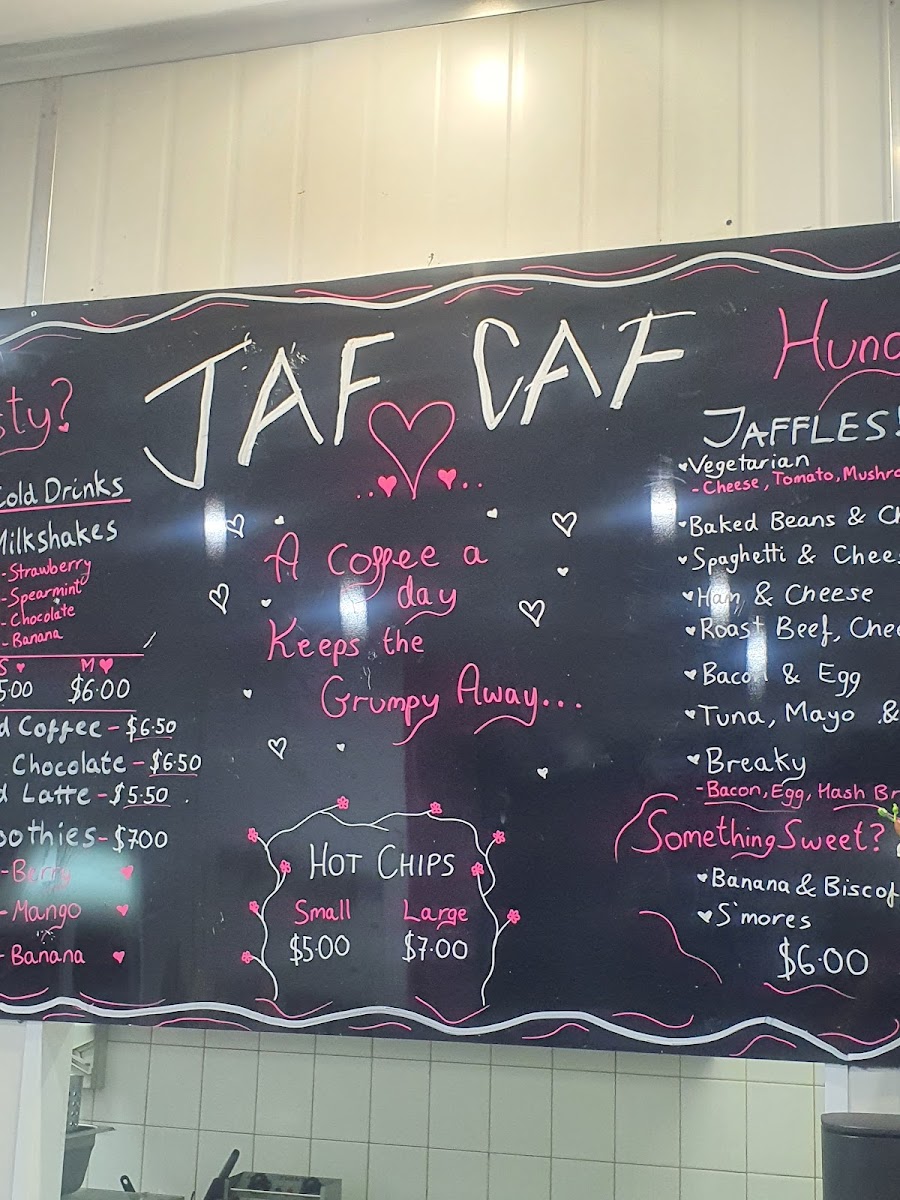 JAF CAF
A Coffee a
day
Keeps the
Grumpy Away...
Cold Drinks
Milkshakes
-Strawberry
-Spearmint
-Chocolate
-Banana
S M
$6.00
Coffee - $6.50
Chocolate - $6.50
Latte - $5.50
-$7.00
-Berry
-Mango
-Banana
HOT CHIPS
Small Large
$5.00 $7.00
JAFFLES!
Vegetarian
- Cheese, Tomato,
Baked Beans &
Spaghetti &
Ham & Cheese
Roast Beef,
Bacon & Egg
Tuna, Mayo &
Breaky
-Bacon, Egg, Hash
Something Sweet?
Banana &
S'mores
$6.00